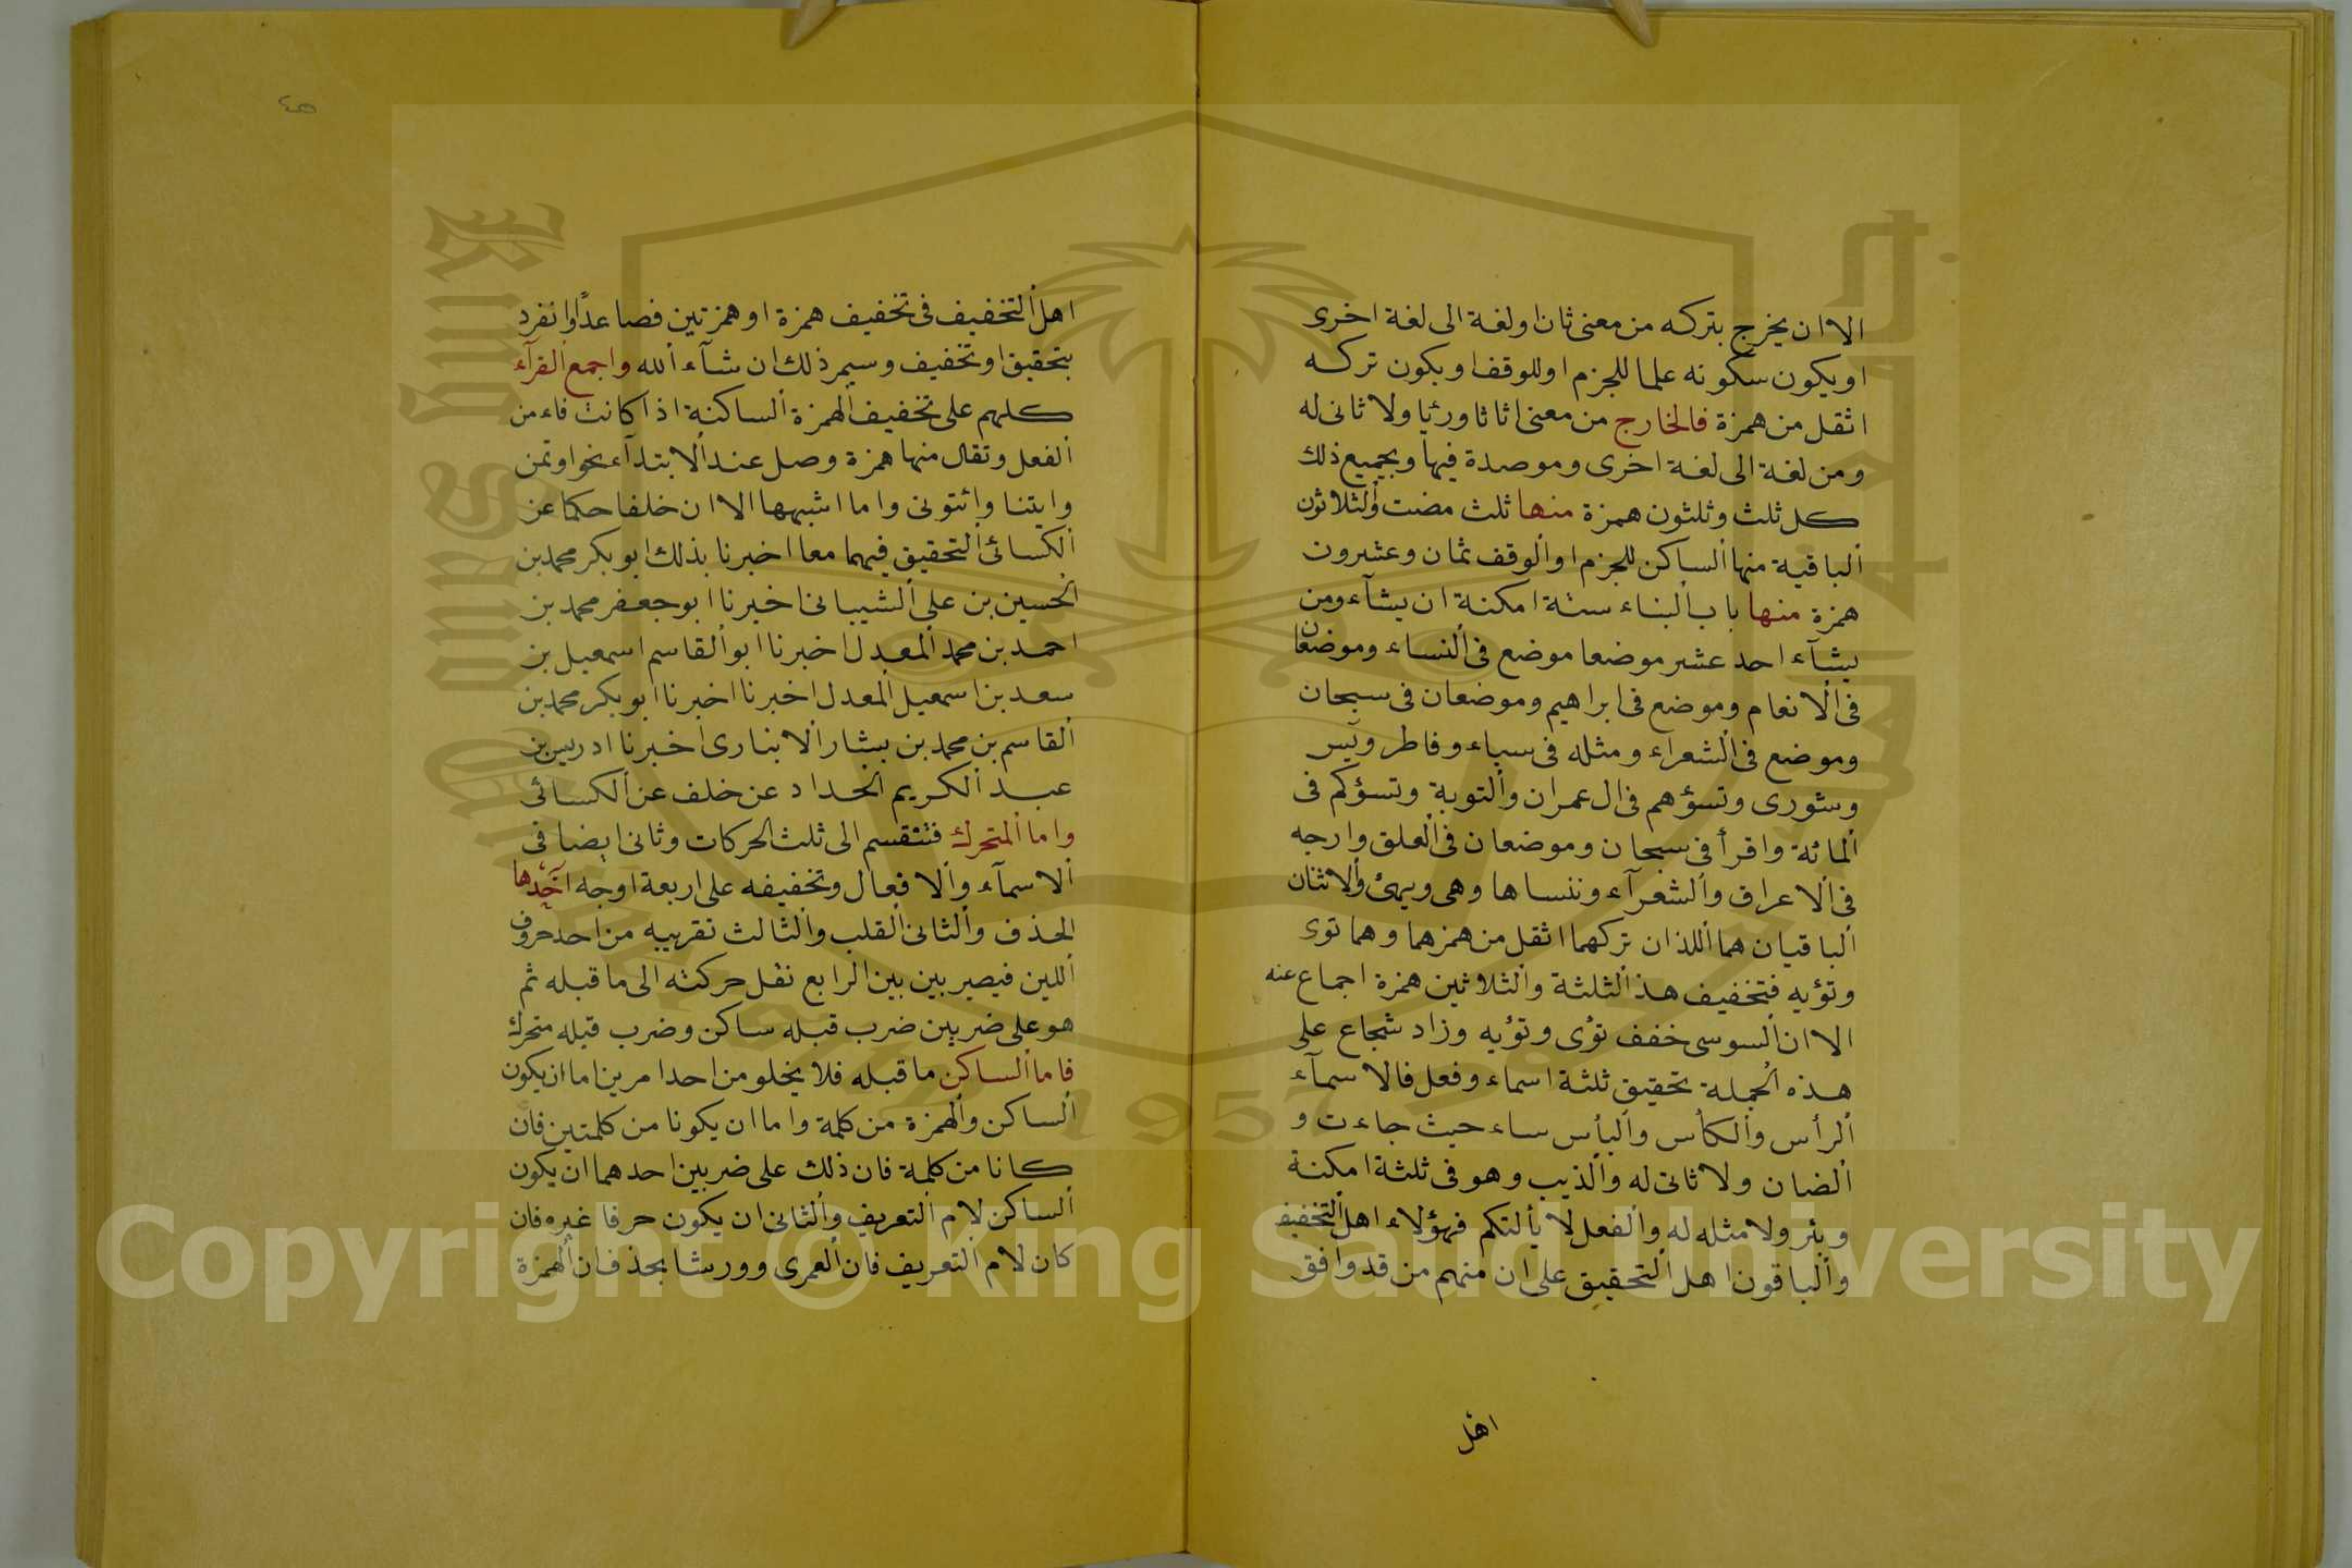 الا ان يخرج بتركه من معنى ثان او لغة الى لغة اخرى
او يكون سكونه علما للجزم او للوقف او يكون تركه
اثقل من همزة فالخارج من معنى اثاثا ورئيا ولا ثانى له
ومن لغة الى لغة اخرى وموصدة فيها وبجميع ذلك
كل ثلث وثلثون همزة منها ثلث مضت والثلاثون
الباقية منها الساكن للجزم او الوقف ثمان وعشرون
همزة منها باب البناء ستة امكنة ان يشآء ومن
يشآء احد عشر موضعا موضع فى النساء وموضعان
فى الانعام وموضع فى ابراهيم وموضعان فى سبحان
وموضع فى الشعراء ومثله فى سباء وفاطر ويس
وشورى وتسؤهم فى ال عمران والتوبة وتسؤكم فى
المائة واقرأ فى سبحان وموضعان فى العلق وارجه
فى الاعراف والشعرآء وننساها وهى ويهئ والاثنان
الباقيان هما اللذان تركهما اثقل من همزهما وهما توى
وتؤيه فتخفيف هذ الثلثة والثلاثين همزة اجماع عنه
الا ان السوسى خفف تؤى وتؤيه وزاد شجاع على
هذه الجملة تحقيق ثلثة اسماء وفعل فالاسمآء
الرأس والكأس والبأس ساء حيث جاءت و
الضان ولا ثانى له والذيب وهو فى ثلثة امكنة
وبئر ولا مثله له والفعل لا يألتكم فهؤلاء اهل التخفيف
والباقون اهل التحقيق على ان منهم من قد وافق
اهل
٤٥
اهل التخفيف فى تخفيف همزة او همزتين فصاعدًا وانفرد
بتحقيق او تخفيف وسيمر ذلك ان شآء الله واجمع القرآء
كلهم على تخفيف الهمزة الساكنة اذا كانت فاء من
الفعل وتقال منها همزة وصل عند الابتدآء نحو اوتمن
وايتنا وائتونى واما اشبهها الا ان خلفا حكا عن
الكسائى التحقيق فيهما معا اخبرنا بذلك ابو بكر محمد بن
الحسين بن على الشيبانى اخبرنا ابو جعفر محمد بن
احمد بن محمد المعدل اخبرنا ابو القاسم اسمعيل بن
سعد بن اسمعيل المعدل اخبرنا اخبرنا ابو بكر محمد بن
القاسم بن محمد بن بشار الانبارى اخبرنا ادريس بن
عبد الكريم الحداد عن خلف عن الكسائى
واما المتحرك فتنقسم الى ثلث الحركات وثانى ايضا فى
الاسمآء والافعال وتخفيفه على اربعة اوجه احدها
الحذف والثانى القلب والثالث تقريبه من احد حروف
اللين فيصير بين بين الرابع نقل حركته الى ما قبله ثم
هو على ضربين ضرب قبله ساكن وضرب قبله متحرك
فاما الساكن ما قبله فلا يخلو من احد امرين اما ان يكون
الساكن والهمزة من كلمة واما ان يكونا من كلمتين فان
كانا من كلمة فان ذلك على ضربين احدهما ان يكون
الساكن لام التعريف والثانى ان يكون حرفا غيره فان
كان لام التعريف فان العمرى وورشا يحذفان الهمزة
Copyright © King Saud University
1957